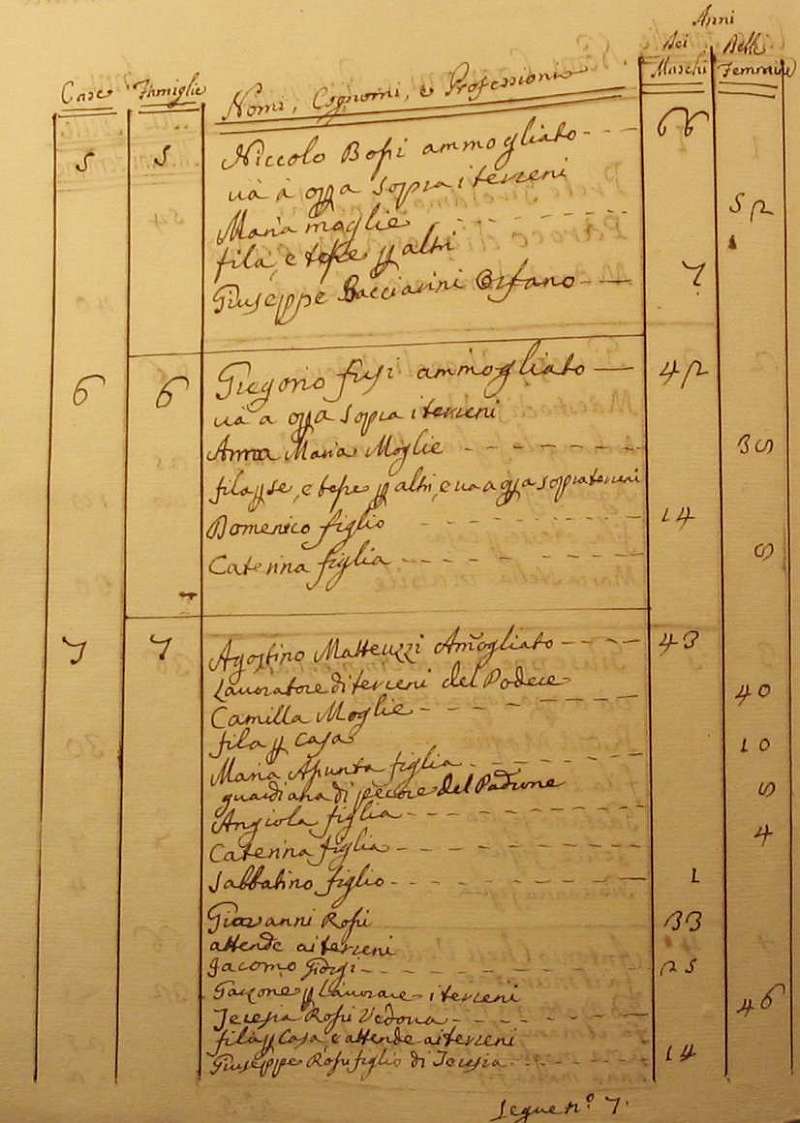 Anni
Case Famiglie Nomi, Cognomi, e Professioni Dei Maschi Delle Femmine
5 5 Niccolo Bossi ammogliato 66
và à opa sopra i terreni
Maria moglie 52
fila, e tesse p altri
Giuseppe Bacciarini Orfano 7
6 6 Gregorio fusi ammogliato 42
và a opa sopra i terreni
Anna Maria Moglie 35
fila p se, e tesse p altri, e va a opa sopra terreni
Domenico figlio 14
Caterina figlia 5
7 7 Agostino Matteuzzi Amogliato 43
Lavoratore di terreni del Podere
Camilla Moglie 40
fila p casa
Maria Asunta figlia 10
guardiana di pecore del Padrone
Angiola figlia 5
Caterina figlia 4
Sabbatino figlio 1
Giovanni Rossi 33
attende ai terreni
Jacomo 25
Garzone p Lavorare i terreni
Teresia Rossi Vedova 46
fila p Casa, e attende ai terreni
Giuseppe Rossi figlio di Teresia 14
Segue n.º 7.